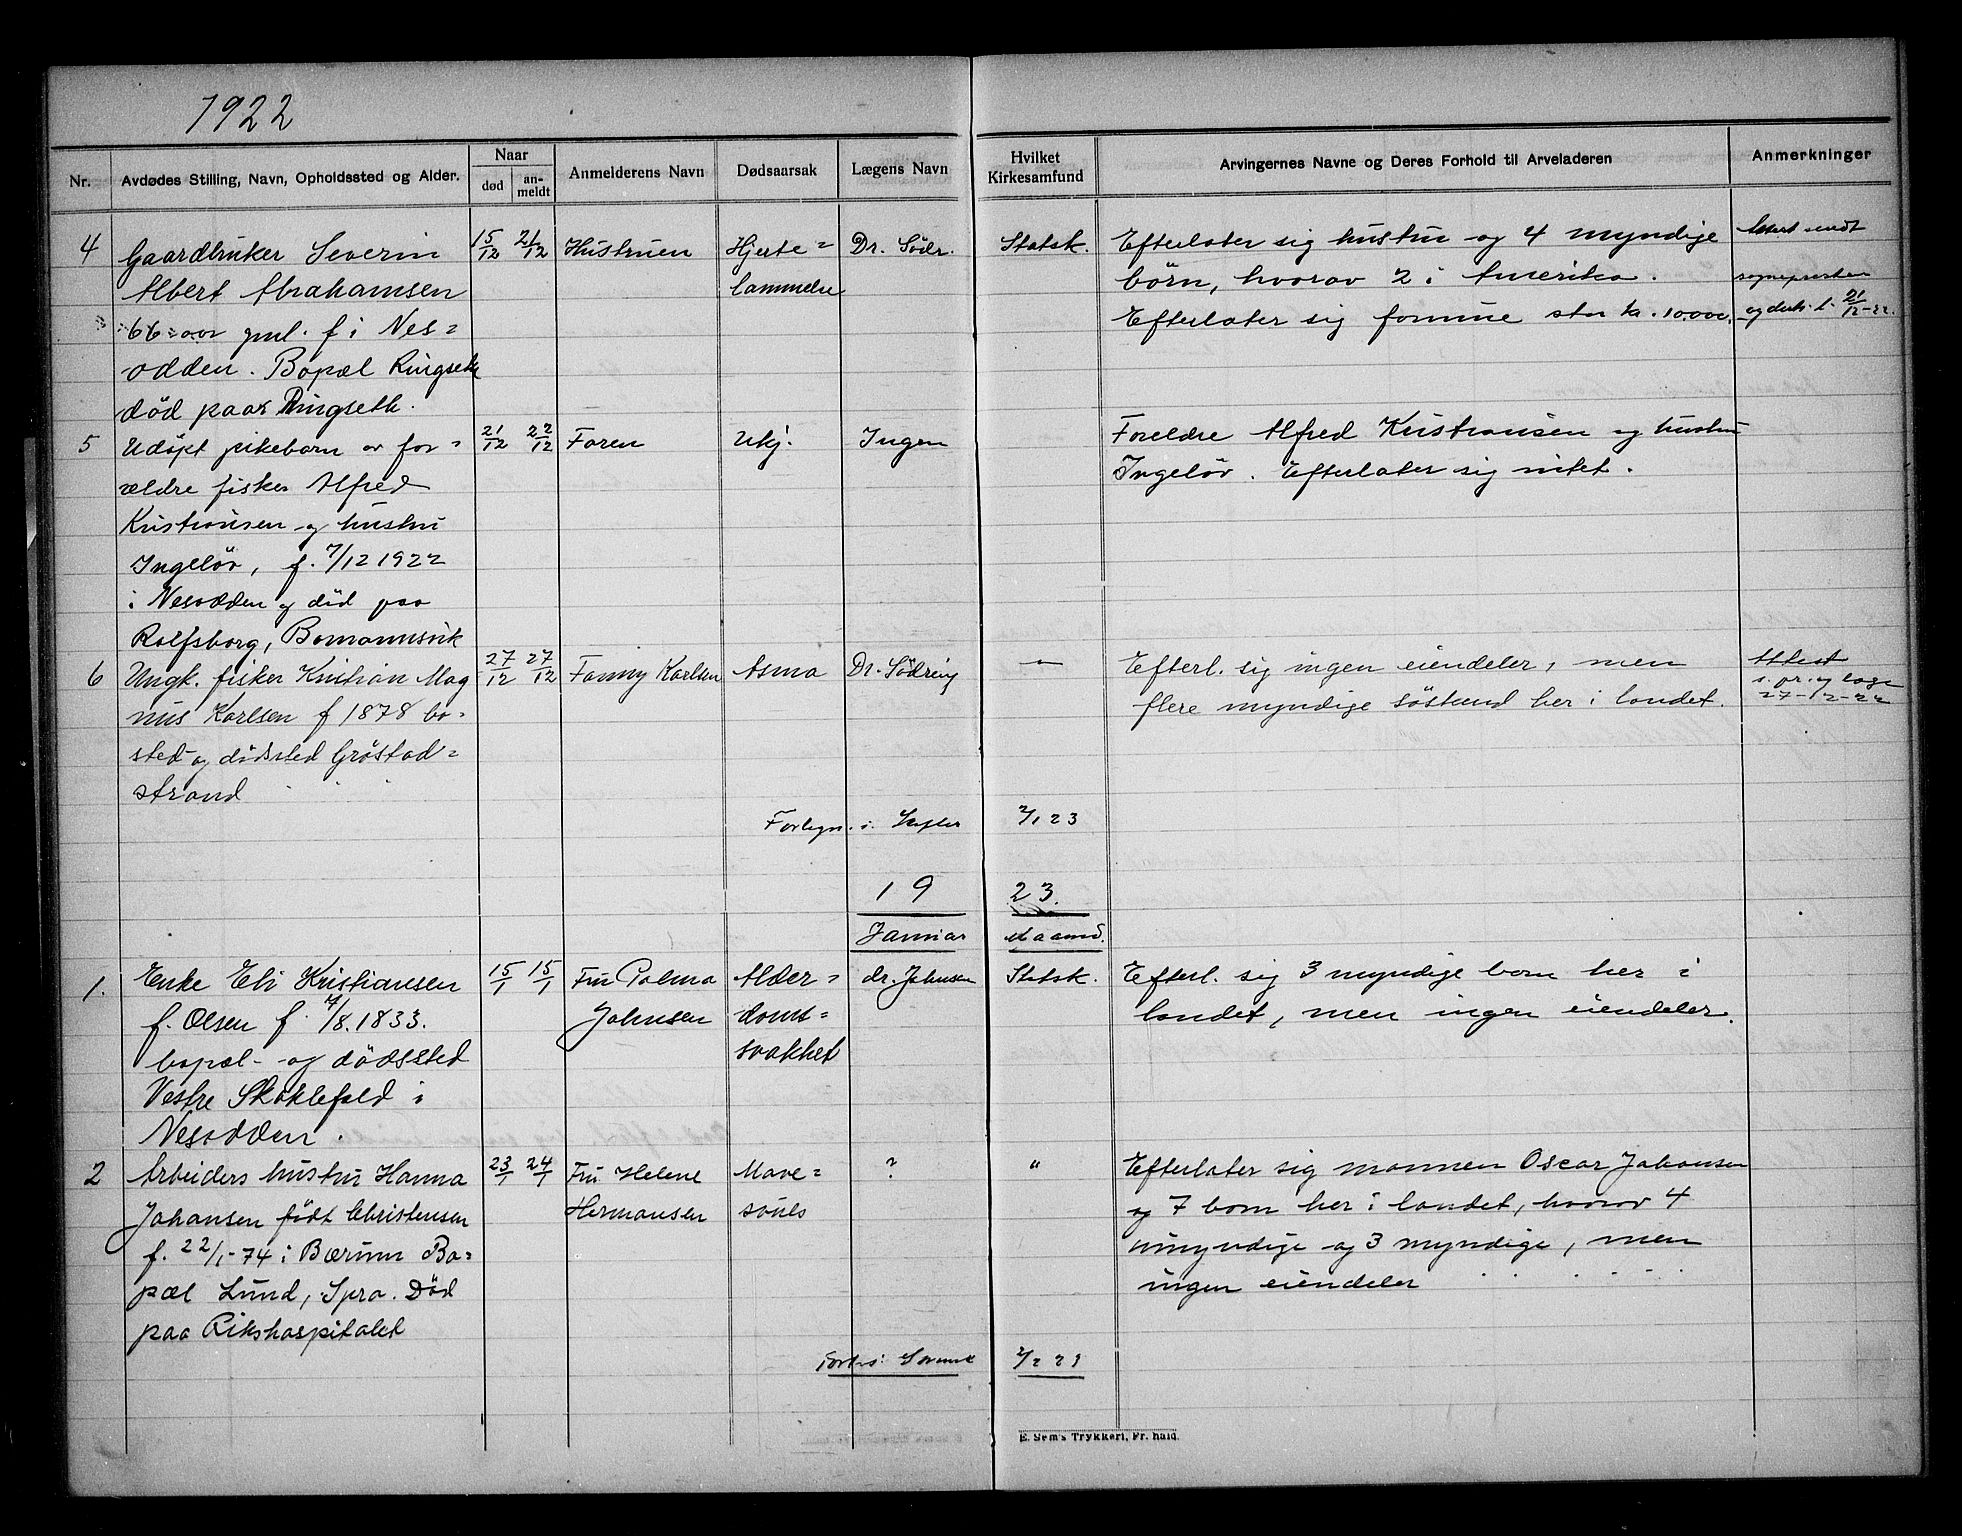 1922
Nr.
Avdødes Stilling, Navn, Opholdssted og Alder.
Naar
død
an-
meldt
Anmelderens Navn
Dødsaarsak
Lægens Navn
Hvilket
Kirkesamfund
Arvingernes Navne og Deres Forhold til Arveladeren
Anmerkninger
4
Gaardbruker Severin
Albert Abrahamsen
66 aar gml. f i Nes=
odden. Bopæl Ringseth
død paa Ringseth.
15/12
21/12
Hustruen
Hjerte=
lammelse
Dr. Södr.
Statsk.
Efterlater sig hustru og 4 myndige
børn, hvorav 2 i Amerika.
Efterlater sig formue stor kr. 10000.
Attest sendt
sognepresten
21/12-22.
5
Udöpt pikebarn av for=
ældre fisker Alfred
Kristiansen og hustru
Ingelöv, f. 7/12 1922
i Nesodden og död paa
Rolfsborg, Bomannsvik
21/12
22/12
Faren
Ukj.
Ingen
Foreldre Alfred Kristiansen og hustru
Ingeløv. Efterlater sig intet.
6
Ungk. fisker Kristian Mag
nus Karlsen f 1878 bo-
sted- og dödssted Gröstad=
strand
27/12
27/12
Fanny Karlsen
Asma
Dr. Södring
—
Efterl. sig ingen eiendeler, men
flere myndige söskend her i landet.
Attest
s. pr. og
27-12-22
i
2/1 23
19 23.
Januar Maaned.
1.
Enke Eli Kristiansen
f. Olsen f. 7/8. 1833.
bopæl- og dödssted
Vestre Skoklefald i
Nesodden.
15/1
15/1
Fru Palma
Johnsen
Alder=
doms=
svakhet
dr. Johnsen
Statsk.
Efterl. sig 3 myndige born her i
landet, men ingen eiendeler.
2
Arbeiders hustru Hanna
Johansen født Christensen
f. 22/1-74 i Bærum Bo=
pæl Lund, Spro. Död
paa Rikshospitalet
23/1
24/1
Fru Helene
Hermansen
Mave=
?
"
Efterlater sig mannen Oscar Johansen
og 7 born her i landet, hvorav 4
umyndige og 3 myndige, men
ingen eiendeler
E. Sem's Trykkeri, Fr.hald.